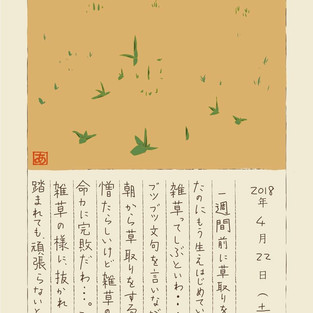 2018年4月22日(土
一週間前に草取りを
たのにもう生えはじめてい
雑草ってしぶといわ・・
ブツブツ文句を言いなが
朝から草取りをする
憎たらしいけど雑草の
命力に完敗だわ・・・。
雑草の様に、抜かれ
踏まれても、頑張らないと
あ